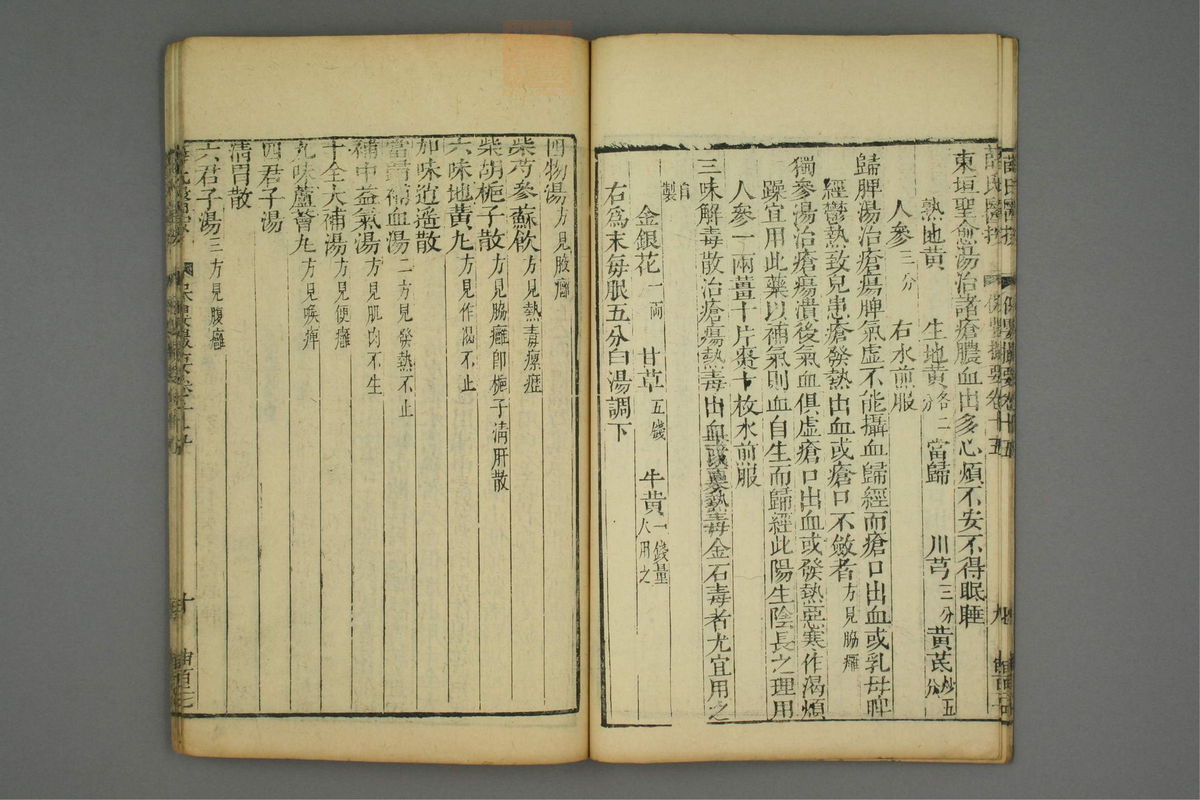 東垣聖愈湯治諸瘡膿血出多心煩不安不得眠睡
熟地黃 生地黃各二分 當歸 川芎三分 黃芪炒五分
人參三分 右水煎服
歸脾湯治瘡瘍脾氣虛不能攝血歸經而瘡口出血或乳母脾
經鬱熱致兒患瘡發熱出血或瘡口不斂者方見脇癰
獨參湯治瘡瘍潰後氣血俱虛瘡口出血或發熱惡寒作渴煩
躁宜用此藥以補氣則血自生而歸經此陽生陰長之理用
人參一兩薑十片棗十枚水煎服
三味解毒散治瘡瘍熱毒出血或裏熱毒金石毒者尤宜用之
自製
金銀花一兩 甘草五錢 牛黃一錢量人用之
右爲末每服五分白湯調下
四物湯方見腋癰
柴芍參蘇飲方見熱毒瘰癧
柴胡梔子散方見脇癰卽梔子清肝散
六味地黃丸方見作渴不止
加味逍遙散
當歸補血湯二方見發熱不止
補中益氣湯方見肌肉不生
十全大補湯方見便癰
九味蘆薈丸方見喉痺
四君子湯
清胃散
六君子湯三方見腹癰